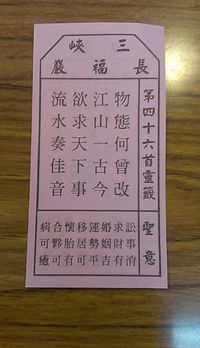 三峽
長福巖
第四十六首靈籤
物態何曾改
江山一古今
欲求天下事
流水奏佳音
聖意
訟事消
求財有
婚姻吉
運勢平
移居可
懷胎有
合夥可
病可癒